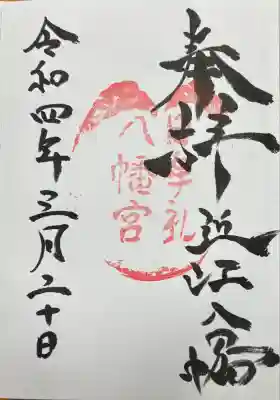 奉拝 近江八幡
日牟礼
八幡宮
令和四年三月二十日